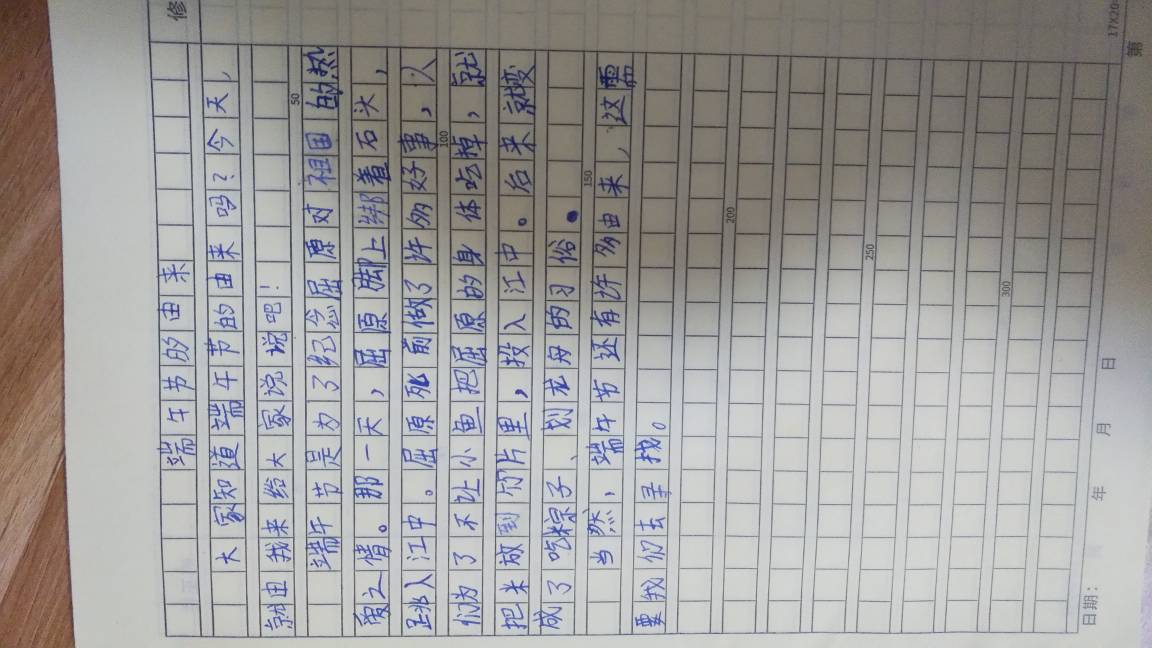 修
端午节的由来
大家知道端午节的由来吗？今天，
就由我来给大家说说吧！
端午节是为了纪念屈原对祖国的热
爱之情。那一天，屈原脚上绑着石头，
跳入江中。屈原死前做了许多好事，人
们为了不让小鱼把屈原的身体吃掉，就
把米放到竹片里，投入江中。后来就变
成了吃粽子、划龙舟的习俗。
当然，端午节还有许多由来，这需
要我们去寻找。
50
100
150
200
250
300
日期： 年 月 日
第
17X20